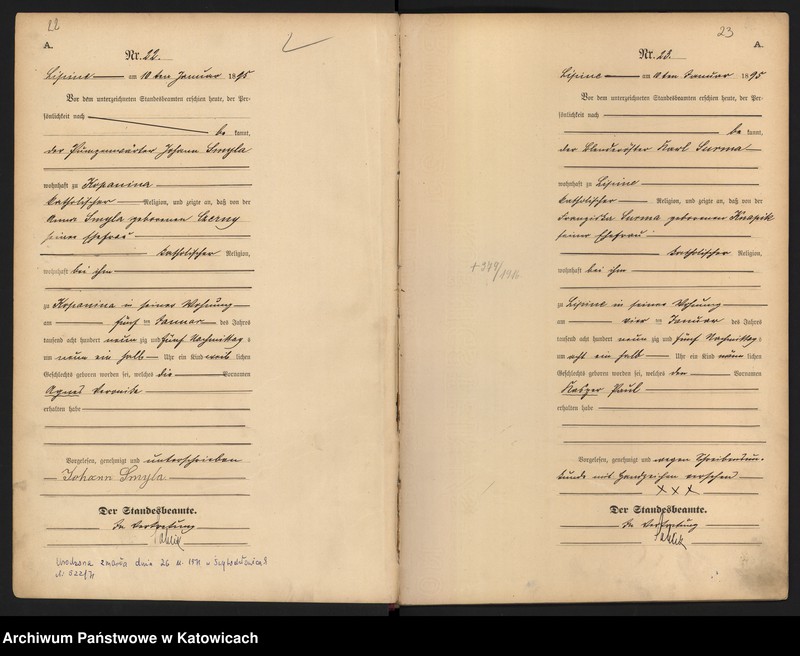 22
A.
Nr. 22.
Lipine am 10ten Januar 1895
Vor dem unterzeichneten Standesbeamten erschien heute, der Per-
sönlichkeit nach
be kannt,
der Pumpenwärter Johann Smyla
wohnhaft zu Kopanina
katholischer Religion, und zeigte an, daß von der
Anna Smyla geborenen Czerny
seiner Ehefrau
katholischer Religion,
wohnhaft bei ihm
zu Kopanina in seiner Wohnung
am fünf ten Januar des Jahres
tausend acht hundert neun zig und fünf Nachmittag s
um neun ein halb Uhr ein Kind weib lichen
Geschlechts geboren worden sei, welches die Vornamen
Agnes Veronika
erhalten habe
Vorgelesen, genehmigt und unterschrieben
Johann Smyla
Der Standesbeamte.
In Vertretung
Urodzona zmarła dnia 26 1971 w
Nr 522/71
23
A.
Nr. 23.
Lipine am 10ten Januar 1895
Vor dem unterzeichneten Standesbeamten erschien heute, der Per-
sönlichkeit nach
be kannt,
der Blenderöster Karl Surma
wohnhaft zu Lipine
katholischer Religion, und zeigte an, daß von der
Franziska Surma geborenen Knapik
seiner Ehefrau
katholischer Religion,
wohnhaft bei ihm
zu Lipine in seiner Wohnung
am vier ten Januar des Jahres
tausend acht hundert neun zig und fünf Nachmittag s
um acht ein halb Uhr ein Kind männ lichen
Geschlechts geboren worden sei, welches den Vornamen
Kasper Paul
erhalten habe
Vorgelesen, genehmigt und wegen Schreibensun-
kunde mit Handzeichen versehen
XXX
Der Standesbeamte.
In Vertretung
Archiwum Państwowe w Katowicach